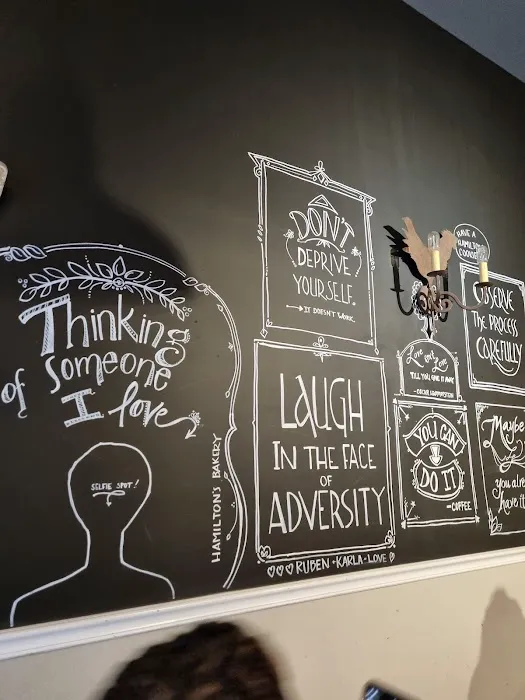 Thinking
of someone
I love
SELFIE SPOT!
HAMILTON'S BAKERY
DON'T
DEPRIVE
YOURSELF.
IT DOESN'T WORK.
LAUGH
IN THE FACE
OF
ADVERSITY
RUBEN + KARLA = LOVE
HAVE A
HAMILTON
COOKIE
Love isn't Love
TILL YOU GIVE IT AWAY
- OSCAR HAMMERSTEIN
YOU CAN
DO IT
- COFFEE
OBSERVE
THE PROCESS
CAREFULLY
Maybe
you
have it